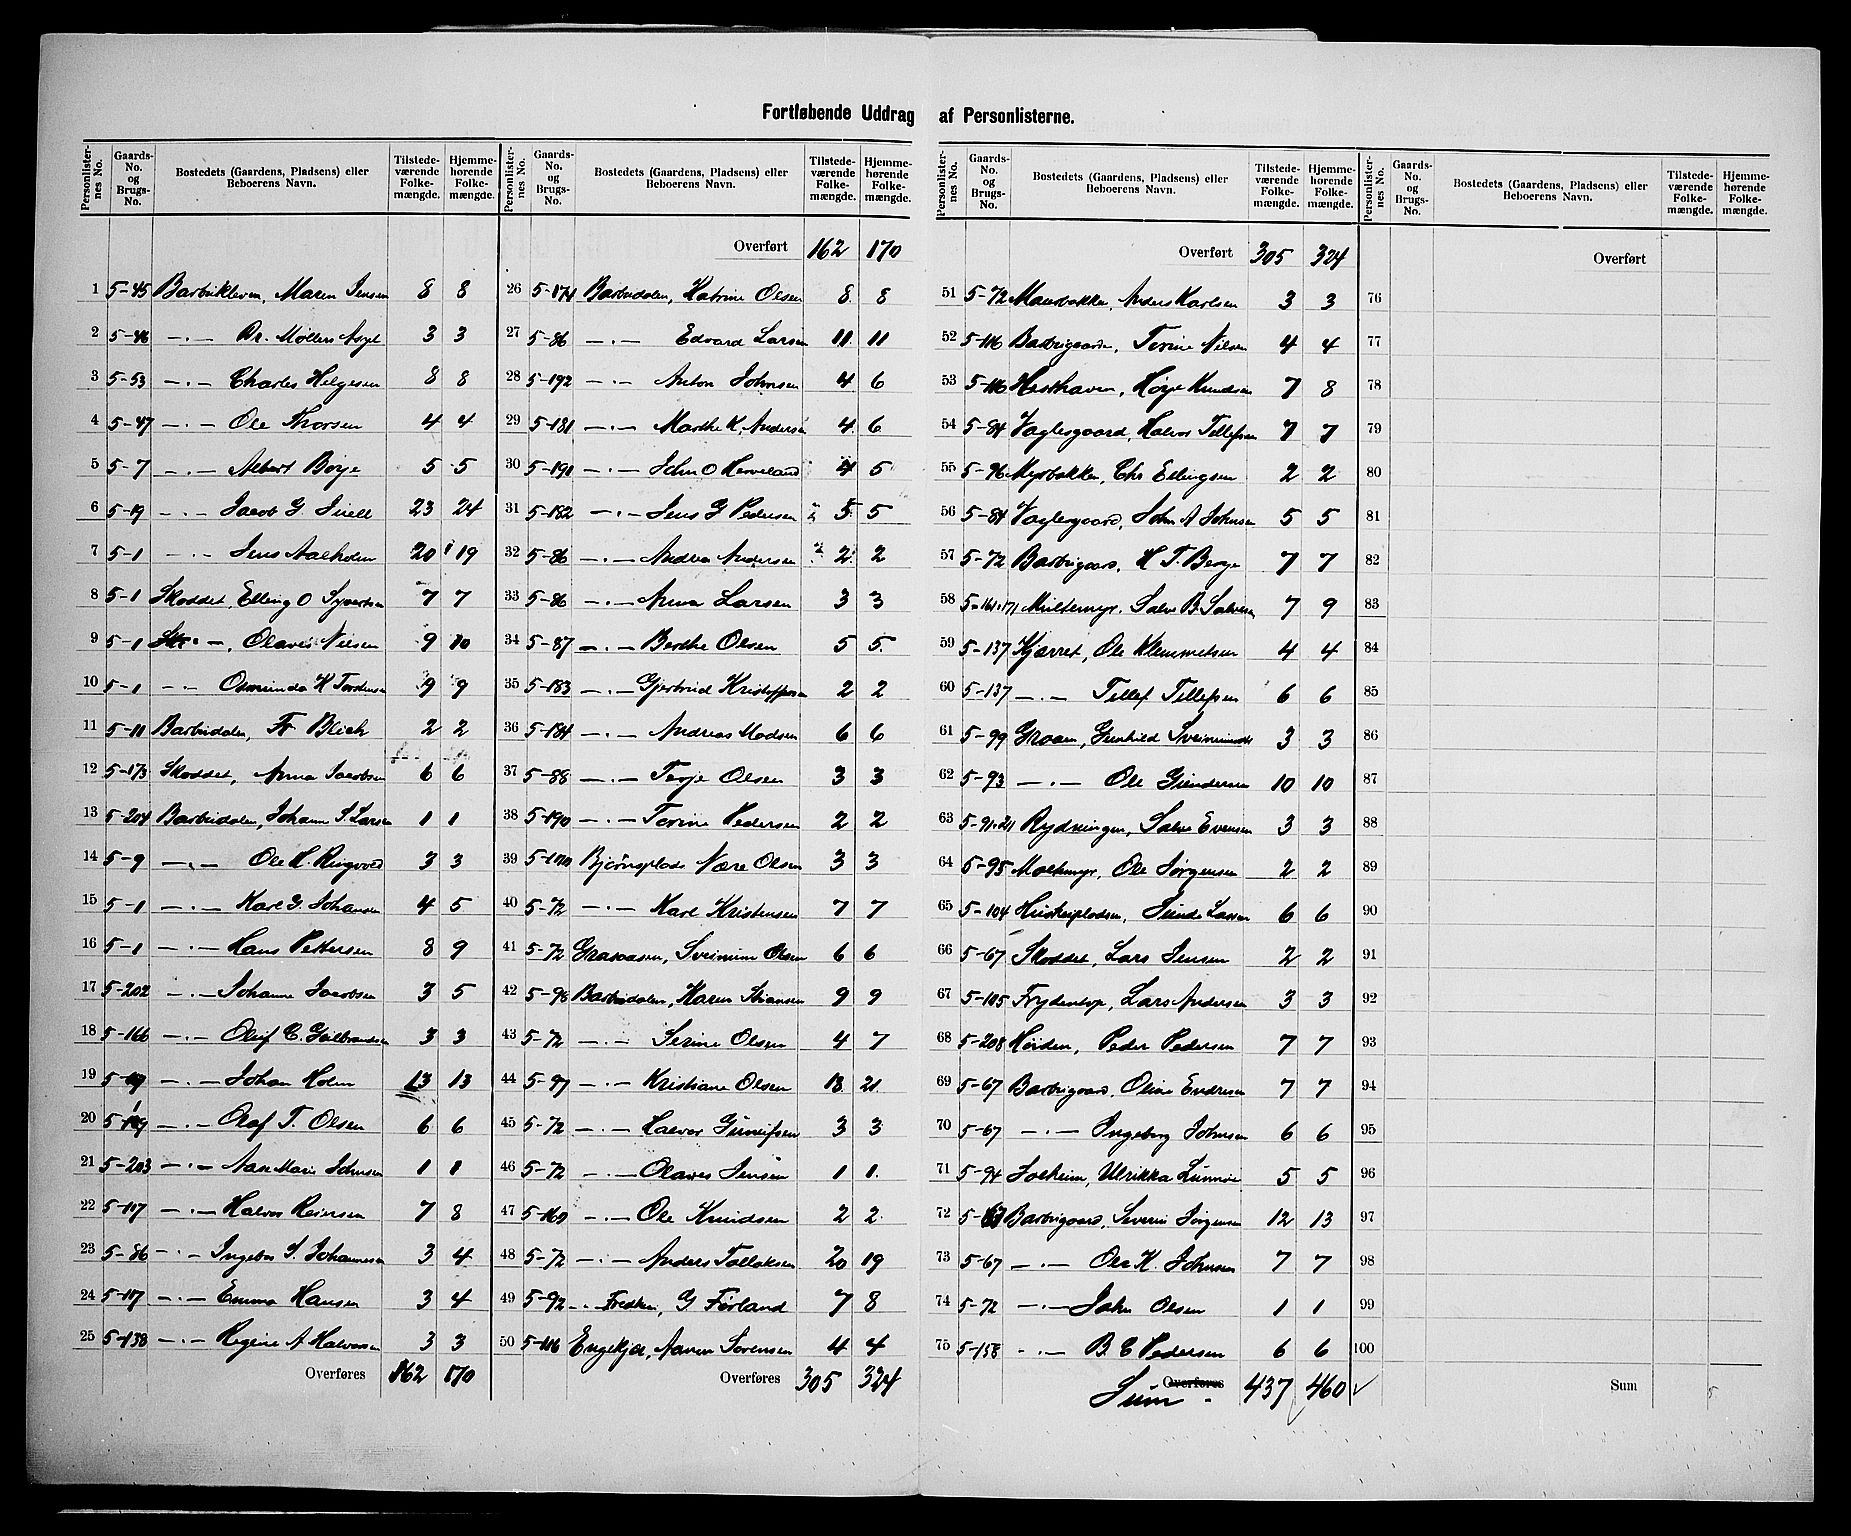 Fortløbende Uddrag af Personlisterne.
Personlisternes No. | Gaards-No. og Brugs-No. | Bostedets (Gaardens, Pladsens) eller Beboerens Navn. | Tilstedeværende Folkemængde. | Hjemmehørende Folkemængde.
1 5-45 Barbukleven, Maren Jensen 8 8
2 5-46 —·— Dr. Møllers Asyl 3 3
3 5-53 —·— Charles Helgesen 8 8
4 5-47 —·— Ole Thorsen 4 4
5 5-7 —·— Albert Boye 5 5
6 5-19 —·— Jacob G 23 24
7 5-1 —·— Jens Aalholm 20 19
8 5-1 Skoddet, Elling O Syvertsen 7 7
9 5-1 —, Olaves Nielsen 9 10
10 5-1 —·— Osmunda K Terkelsen 9 9
11 5-11 Barbudalen, Fr Blich 2 2
12 5-173 Skoddet, Anna Jacobsen 6 6
13 5-204 Barbudalen, Johann S Larsen 1 1
14 5-9 —·— Ole H. Ringvold 3 3
15 5-1 —·— Karl G. Johansen 4 5
16 5-1 —·— Hans Pettersen 8 9
17 5-202 —·— Johanne Jacobsen 3 5
18 5-166 —·— Oluf C. Gulbrandsen 3 3
19 5-19 —·— Johan Holm 13 13
20 5-19 —·— Olaf T. Olsen 6 6
21 5-203 —·— Ane Marie Johnsen 1 1
22 5-117 —·— Halvor Reiersen 7 8
23 5-86 —·— Ingebor S. Johannesen 3 4
24 5-117 —·— Emma Hansen 3 4
25 5-138 —·— Regine A Halvorsen 3 3
Overføres 162 170
Personlisternes No. | Gaards-No. og Brugs-No. | Bostedets (Gaardens, Pladsens) eller Beboerens Navn. | Tilstedeværende Folkemængde. | Hjemmehørende Folkemængde.
Overført 162 170
26 5-174 Barbudalen, Katrine Olsen 8 8
27 5-86 —·— Edvard Larsen 11 11
28 5-192 —·— Anton Johnsen 4 6
29 5-181 —·— Marthe K. Andersen 4 6
30 5-191 —·— John O Herveland 4 5
31 5-182 —·— Jens G Pedersen 5 5
32 5-86 —·— Andrea Andersen 2 2
33 5-86 —·— Anna Larsen 3 3
34 5-87 —·— Berthe Olsen 5 5
35 5-183 —·— Gjertrud Kristoffersen 2 2
36 5-184 —·— Andreas Madsen 6 6
37 5-88 —·— Terje Olsen 3 3
38 5-190 —·— Torine Pedersen 2 2
39 5-100 Bjørnsplads Nære Olsen 3 3
40 5-72 —·— Karl Kristensen 7 7
41 5-72 Graaaasen, Sveinum Olsen 6 6
42 5-98 Barbudalen, Karen Stiansen 9 9
43 5-72 —·— Serine Olsen 4 7
44 5-97 —·— Kristiane Olsen 18 21
45 5-72 —·— Halvor Gunnufsen 3 3
46 5-72 —·— Olaves Jensen 1 1
47 5-160 —·— Ole Knudsen 2 2
48 5-72 —·— Anders Tallaksen 20 19
49 5-92 —·— Fredheim, G Førland 7 8
50 5-116 Engekjær, Aanen Sørensen 4 4
Overføres 305 324
Personlisternes No. | Gaards-No. og Brugs-No. | Bostedets (Gaardens, Pladsens) eller Beboerens Navn. | Tilstedeværende Folkemængde. | Hjemmehørende Folkemængde.
Overført 305 324
51 5-72 Maurbakken, Anders Karlsen 3 3
52 5-116 Barbugaarden, Terine Nilsen 4 4
53 5-116 Hesthaven, Børje Knudsen 7 8
54 5-84 Vaglesgaard, Halvor Tellefsen 7 7
55 5-96 Myrbakken, Chr Ellingsen 2 2
56 5-84 Vaglesgaard, John A Johnsen 5 5
57 5-72 Barbugaard, H T. Berge 7 7
58 5-161·171 Multemyr, Salve B. Salvesen 7 9
59 5-137 Kjærret, Ole Klemmetsen 4 4
60 5-137 —·— Tellef Tellefsen 6 6
61 5-99 Graaen, Gunhild 3 3
62 5-93 —·— Ole Gundersen 10 10
63 5-91·21 Rydningen, Salve Evensen 3 3
64 5-95 Moltemyr, Ole Jørgensen 2 2
65 5-104 Huskeiplodsen, Gunde Larsen 6 6
66 5-67 Skoddet, Lars Jensen 2 2
67 5-105 Frydentop, Lars Andersen 3 3
68 5-208 Høiden, Peder Pedersen 7 7
69 5-67 Barbugaard, Oline Evensen 7 7
70 5-67 —·— Ingeborg Johnsen 6 6
71 5-94 Solheim, Ulrikka Lunnøe 5 5
72 5-67 Barbugaard, Severin Jørgensen 12 13
73 5-67 —·— Ole K. Johnsen 7 7
74 5-72 —·— John Olsen 1 1
75 5-158 —·— B. C Pedersen 6 6
Overføres Sum 437 460
Personlisternes No. | Gaards-No. og Brugs-No. | Bostedets (Gaardens, Pladsens) eller Beboerens Navn. | Tilstedeværende Folkemængde. | Hjemmehørende Folkemængde.
Overført
76
77
78
79
80
81
82
83
84
85
86
87
88
89
90
91
92
93
94
95
96
97
98
99
100
Sum